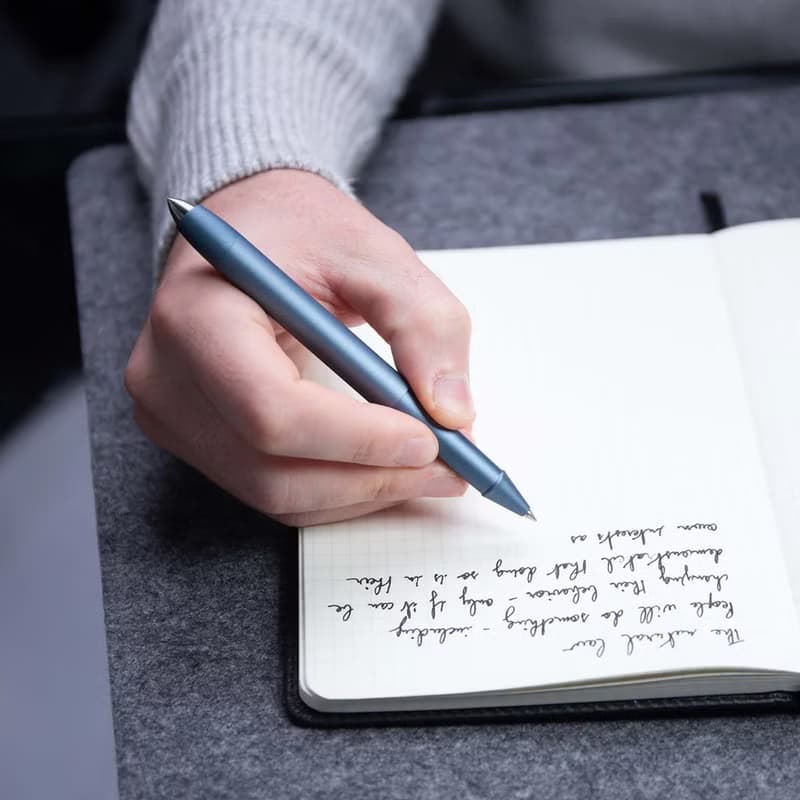 The natural law
People will do something - including
changing their behavior - only if it can be
demonstrated that doing so is in their
own interests as